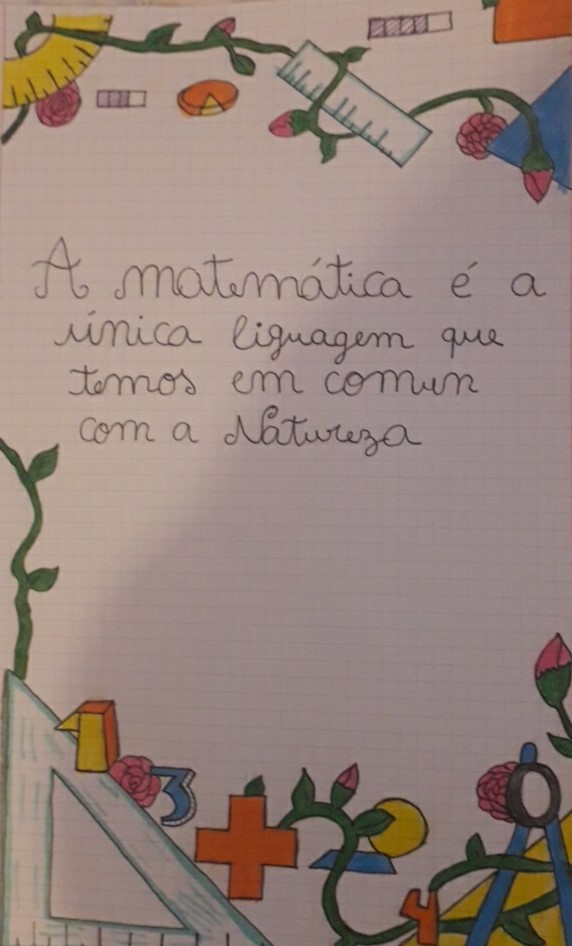 A matemática é a
única liguagem que
temos em comun
com a Natureza
1
3
4